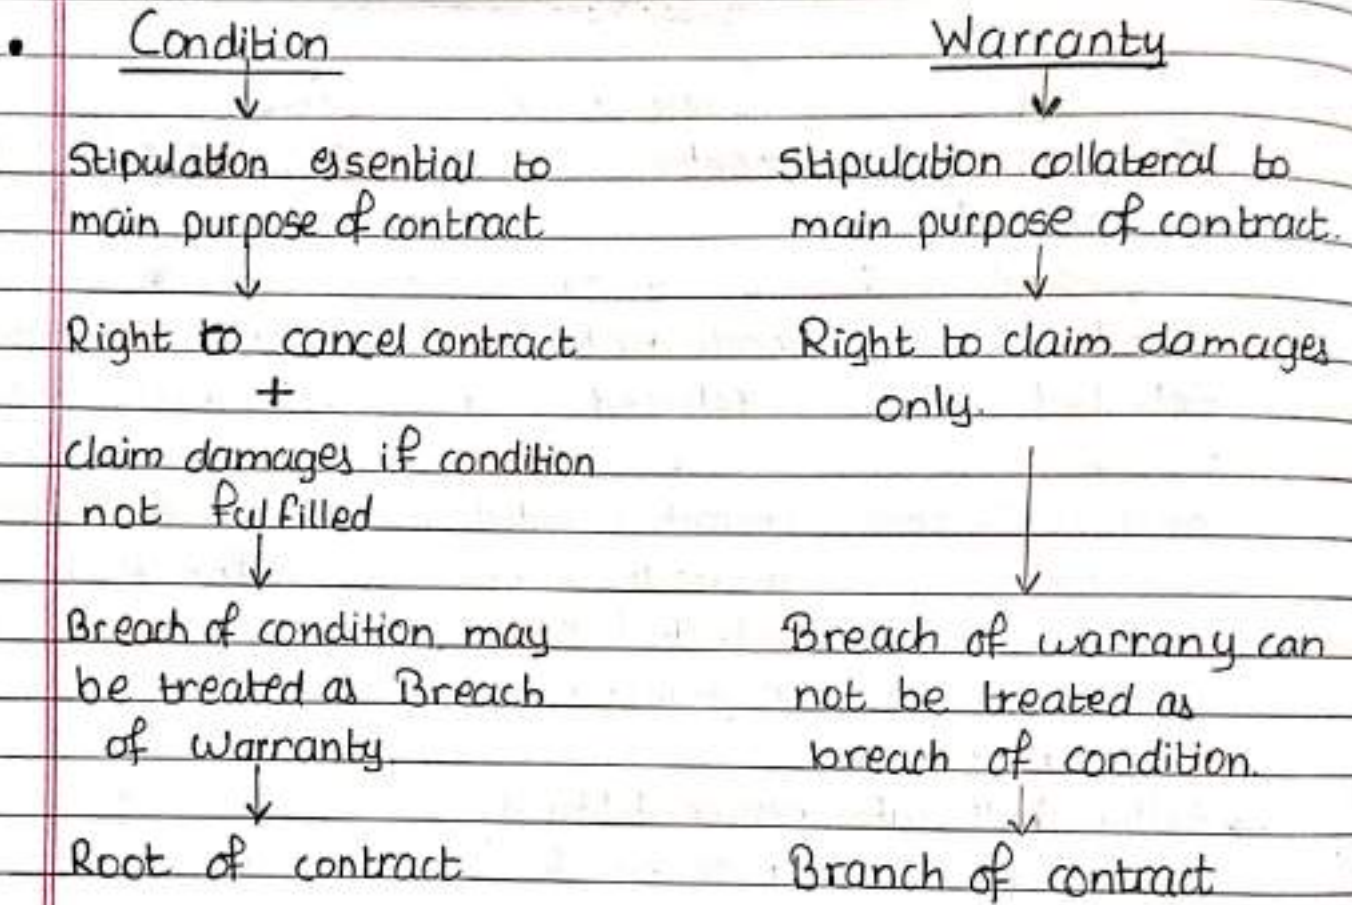 • Condition
Stipulation essential to
main purpose of contract
Right to cancel contract
+
claim damages if condition
not fulfilled
Breach of condition may
be treated as Breach
of warranty
Root of contract
Warranty
Stipulation collateral to
main purpose of contract.
Right to claim damages
only.
Breach of warrany can
not be treated as
breach of condition.
Branch of contract